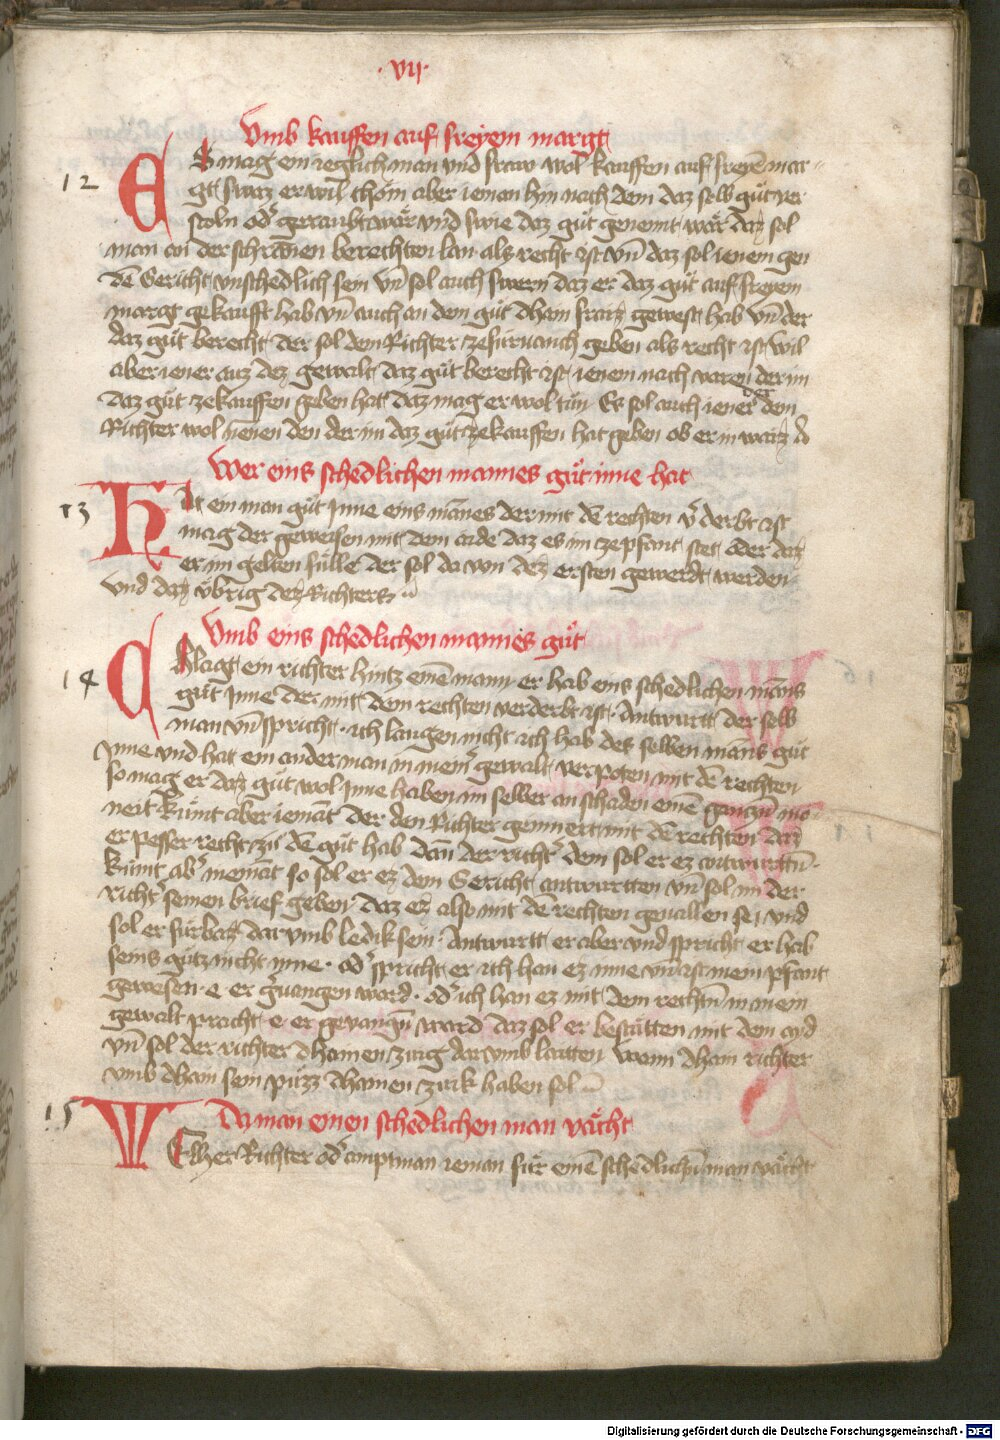 ·vij·
Vmb kauffen auf freyem margt
12 ES mag ein yeglich man vnd fraw wol kauffen auf freyē mar-
gt swaz er wil chöm aber ieman hin nach dem daz selb gůt ver
stoln odˀ geraubt wär vnd swie daz gůt genomt wär daz sol
man an der schrannen berechten lan als recht ist vn̄ daz sol ienem gen
dē Gericht vnschedlich sein vn̄ sol auch swern daz er daz gůt auf freyem
margt gekaufft hab vn̄ auch an dem gůt dham fraiz gewest hab vn̄ der
daz gůt berecht der sol dem Richter ze fürvanch geben als recht ist wil
aber iener auz dez gewalt daz gůt berecht ist ienem nach varen der im
daz gůt ze kauffen geben hat daz mag er wol tůn Es sol auch iener dem
Richter wol nēnen den der im daz gůt ze kauffen hat geben ob er in waiz
Wer eins schedlichen mannes gůt inne hat
13 Hat ein man gůt Inne eins mānes der mit dē rechten vˀderbt ist
mag der geweisen mit dem aide daz es im ze pfant stet oder daz
er im gelten sülle der sol da von dez ersten gewerdt werden
vnd daz übrig dez Richters
Vmb eins schedlichen mannes gůt
14 Chlagt ein richter hintz einē mann er hab eins schedlichen māns
gůt Inne der mit dem rechten verderbt ist Antwurtt der selb
man vn̄ spricht ich laugen nicht ich hab des selben māns gůt
Inne vnd hat ein ander man in meinˀ gewalt verpoten mit dē rechten
so mag er daz gůt wol Inne haben im selber an schaden einē gantzn̄ mo-
neit kůmt aber iemāt der den Richter geinnert mit dē rechten daz
er pesser recht zů dē gůt hab dan̄ der richtˀ dem sol er ez antwurttn̄
kůmt abˀ niemāt so sol er ez dem Gericht antwurtten vn̄ sol im der
richtˀ seinen brief geben daz ez also mit dē rechten geuallen sei vnd
sol er fürbaz dar vmb ledik sein Antwurtt er aber vnd spricht er hab
seins gůtz nicht inne odˀ spricht er ich han ez inne vn̄ ist mein pfant
gewesen e er gevangen ward odˀ ich han ez mit dem rechtn̄ in mein
gewalt pracht e er gevangn̄ ward daz sol er bestätten mit dem ayd
vn̄ sol der richter dhainen zivg dar vmb laitten Wenn dham richter
vmb dham sein půzz dhainen zivk haben sol
15 Da man einen schedlichen man vächt
WElher Richter odˀ amptman ieman für einē schedlichn̄ man vächt
Digitalisierung gefördert durch die Deutsche Forschungsgemeinschaft - DFG